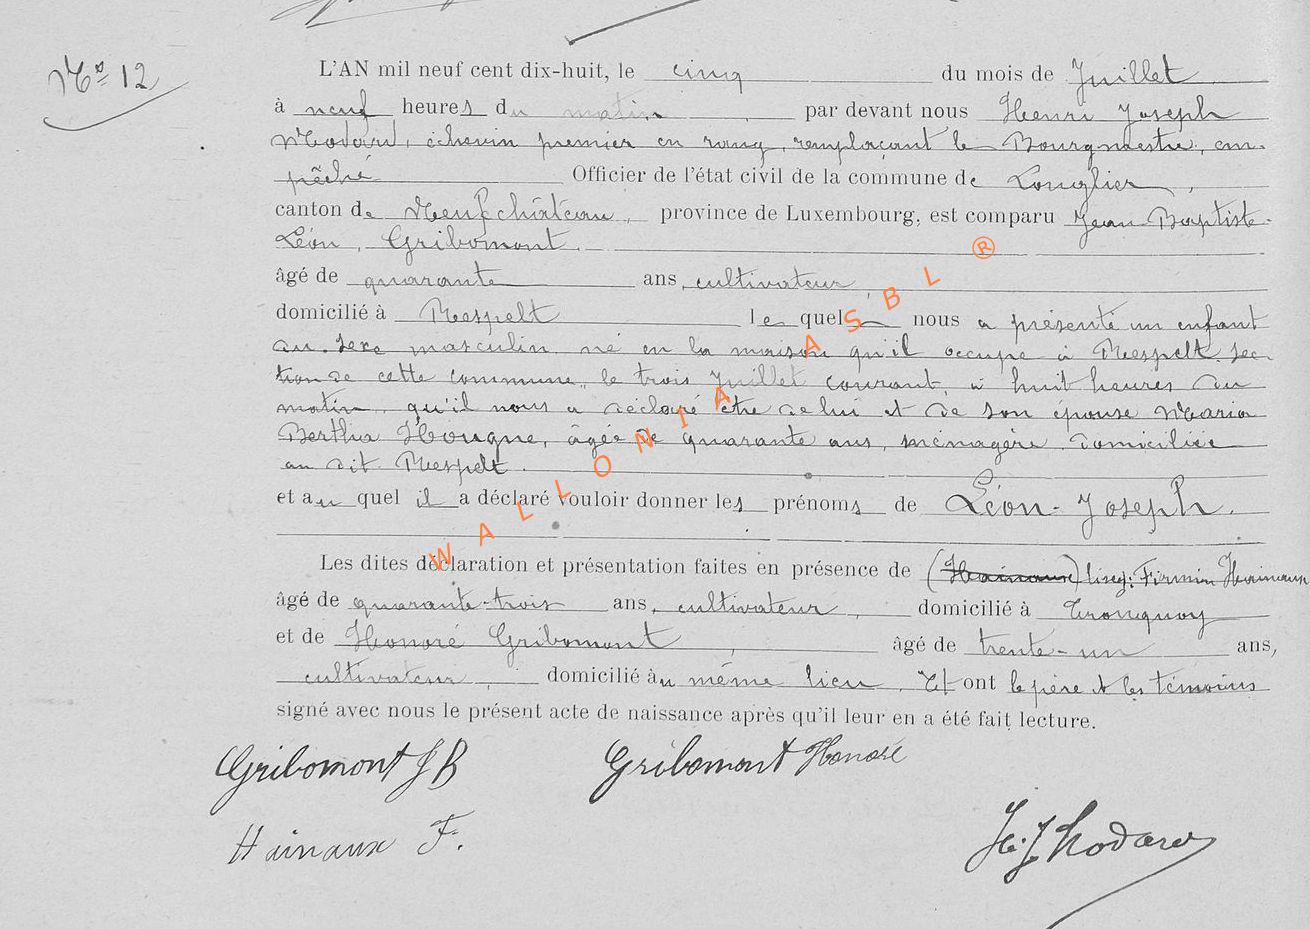 Nº 12
L'AN mil neuf cent dix-huit, le cinq du mois de Juillet
à neuf heures du matin, par devant nous Henri Joseph
Modard, échevin premier en rang, remplaçant le Bourgmestre, em-
pêché Officier de l'état civil de la commune de Longlier,
canton de Neufchâteau, province de Luxembourg, est comparu Jean-Baptiste-
Léon, Gribomont,
âgé de quarante ans, cultivateur,
domicilié à Respelt lequel nous a présenté un enfant
du sexe masculin, né en la maison qu'il occupe à Respelt, sec-
tion de cette commune, le trois Juillet courant, à huit heures du
matin, qu'il nous a déclaré être de lui et de son épouse Maria
Bertha Hougne, âgée de quarante ans, ménagère domiciliée
au dit Respelt.
et auquel il a déclaré vouloir donner les prénoms de Léon-Joseph.
Les dites déclaration et présentation faites en présence de (Hainaux) lisez: Firmin Hainaux
âgé de quarante-trois ans, cultivateur, domicilié à Tronquoy
et de Honoré Gribomont, âgé de trente-un ans,
cultivateur, domicilié au même lieu. Et ont le père et les témoins
signé avec nous le présent acte de naissance après qu'il leur en a été fait lecture.
Gribomont J B Gribomont Honoré
Hainaux F. H. J. Modard
WALLONIA ASBL ®